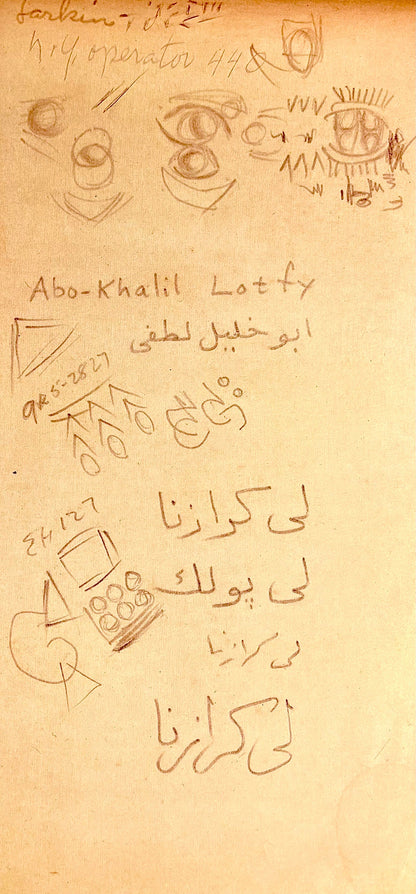 Larkin -
N.Y. operator
Abo-Khalil Lotfy
ابو خليل لطفى
GR5-2827
لى كرازنا
EH 127
لى پولك
لى كرازنا
لى كرازنا